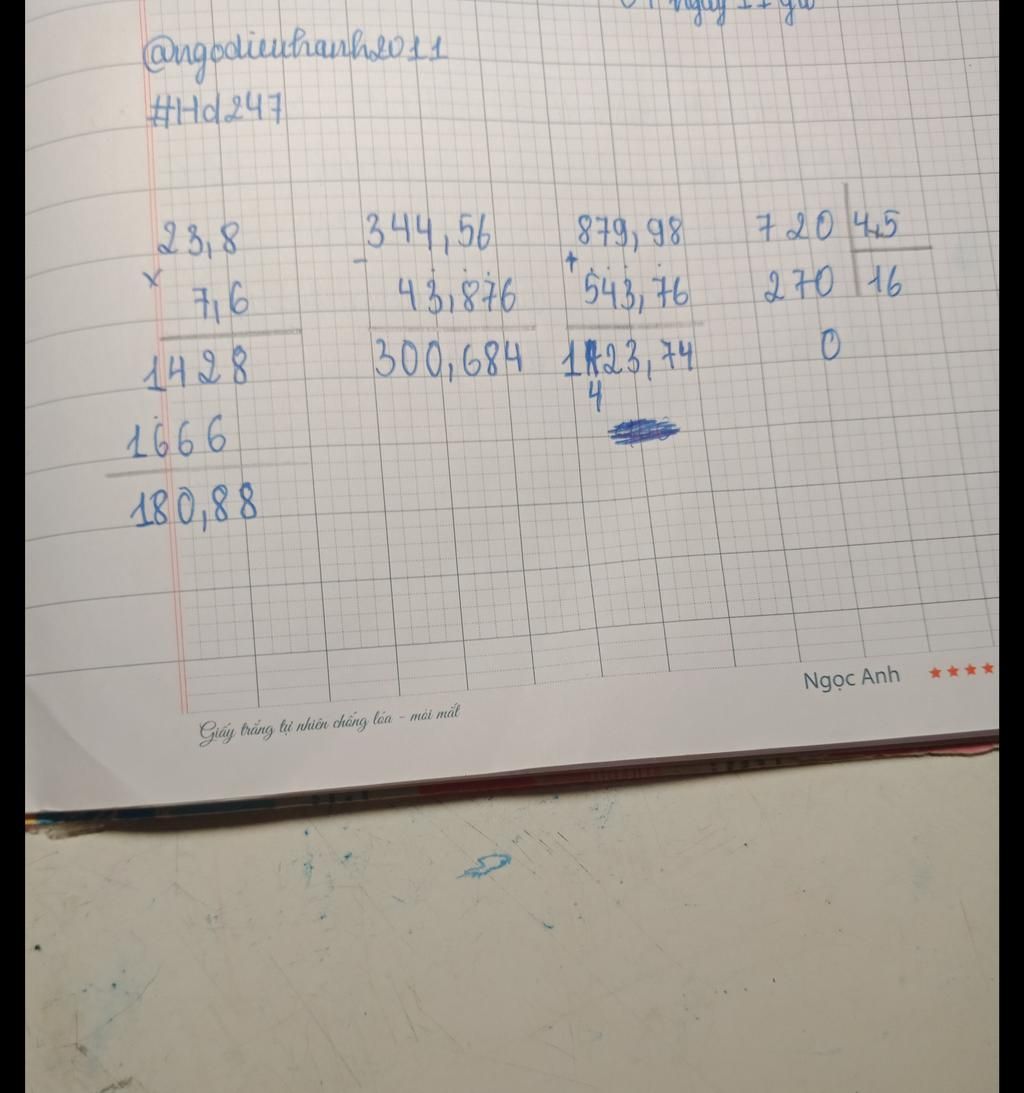 @ngodieuhanh2011
#Hd247
23,8
×
7,6
1428
1666
180,88
344,56
-
43,876
300,684
879,98
+
543,76
1423,74
720 4,5
270 16
0
Ngọc Anh ★★★★
Giấy trắng tự nhiên chống lóa - mỏi mắt